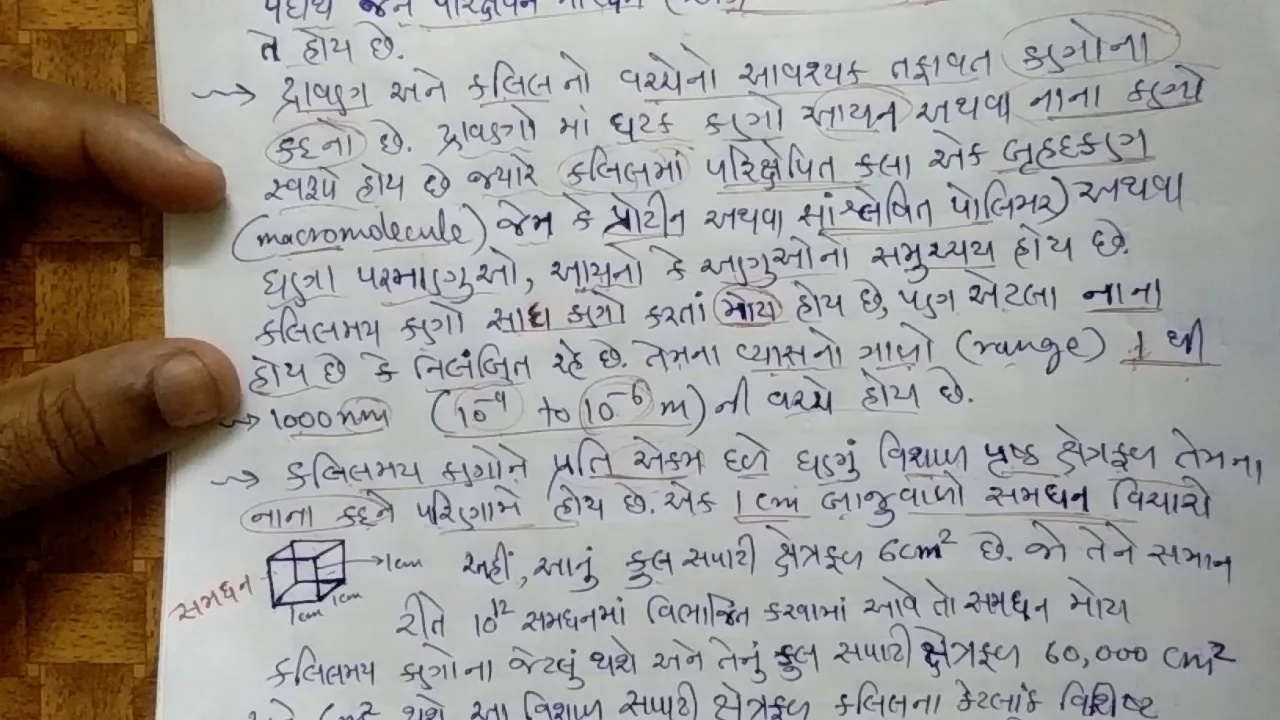 પદાર્થ જેને પરિક્ષેપન માધ્યમ
તે હોય છે.
→ દ્રાવણ અને કલિલનો વચ્ચેનો આવશ્યક તફાવત કણોના
કદનો છે. દ્રાવણો માં ઘટક કણો આયન અથવા નાના કણો
સ્વરૂપે હોય છે જ્યારે કલિલમાં પરિક્ષેપિત કલા એક બૃહદકણ
(macromolecule) જેમ કે પ્રોટીન અથવા સાંશ્લેષિત પોલિમર) અથવા
ઘણા પરમાણુઓ, આયનો કે અણુઓનો સમુચ્ચય હોય છે.
કલિલમય કણો સાદા કણો કરતાં મોટા હોય છે, પણ એટલા નાના
હોય છે કે નિલંબિત રહે છે. તેમના વ્યાસનો ગાળો (range) 1 થી
→ 1000 nm (10⁻⁹ to 10⁻⁶ m) ની વચ્ચે હોય છે.
→ કલિલમય કણોને પ્રતિ એકમ દળે ઘણું વિશાળ પૃષ્ઠ ક્ષેત્રફળ તેમના
નાના કદને પરિણામે હોય છે. એક 1 cm બાજુવાળો સમઘન વિચારો
સમઘન 1cm 1cm 1cm અહીં, આનું કુલ સપાટી ક્ષેત્રફળ 6cm² છે. જો તેને સમાન
રીતે 10¹² સમઘનમાં વિભાજિત કરવામાં આવે તો સમઘન મોટા
કલિલમય કણોના જેટલું થશે અને તેનું કુલ સપાટી ક્ષેત્રફળ 60,000 cm²
cm² થશે આ વિશાળ સપાટી ક્ષેત્રફળ કલિલના કેટલાંક વિશિષ્ટ